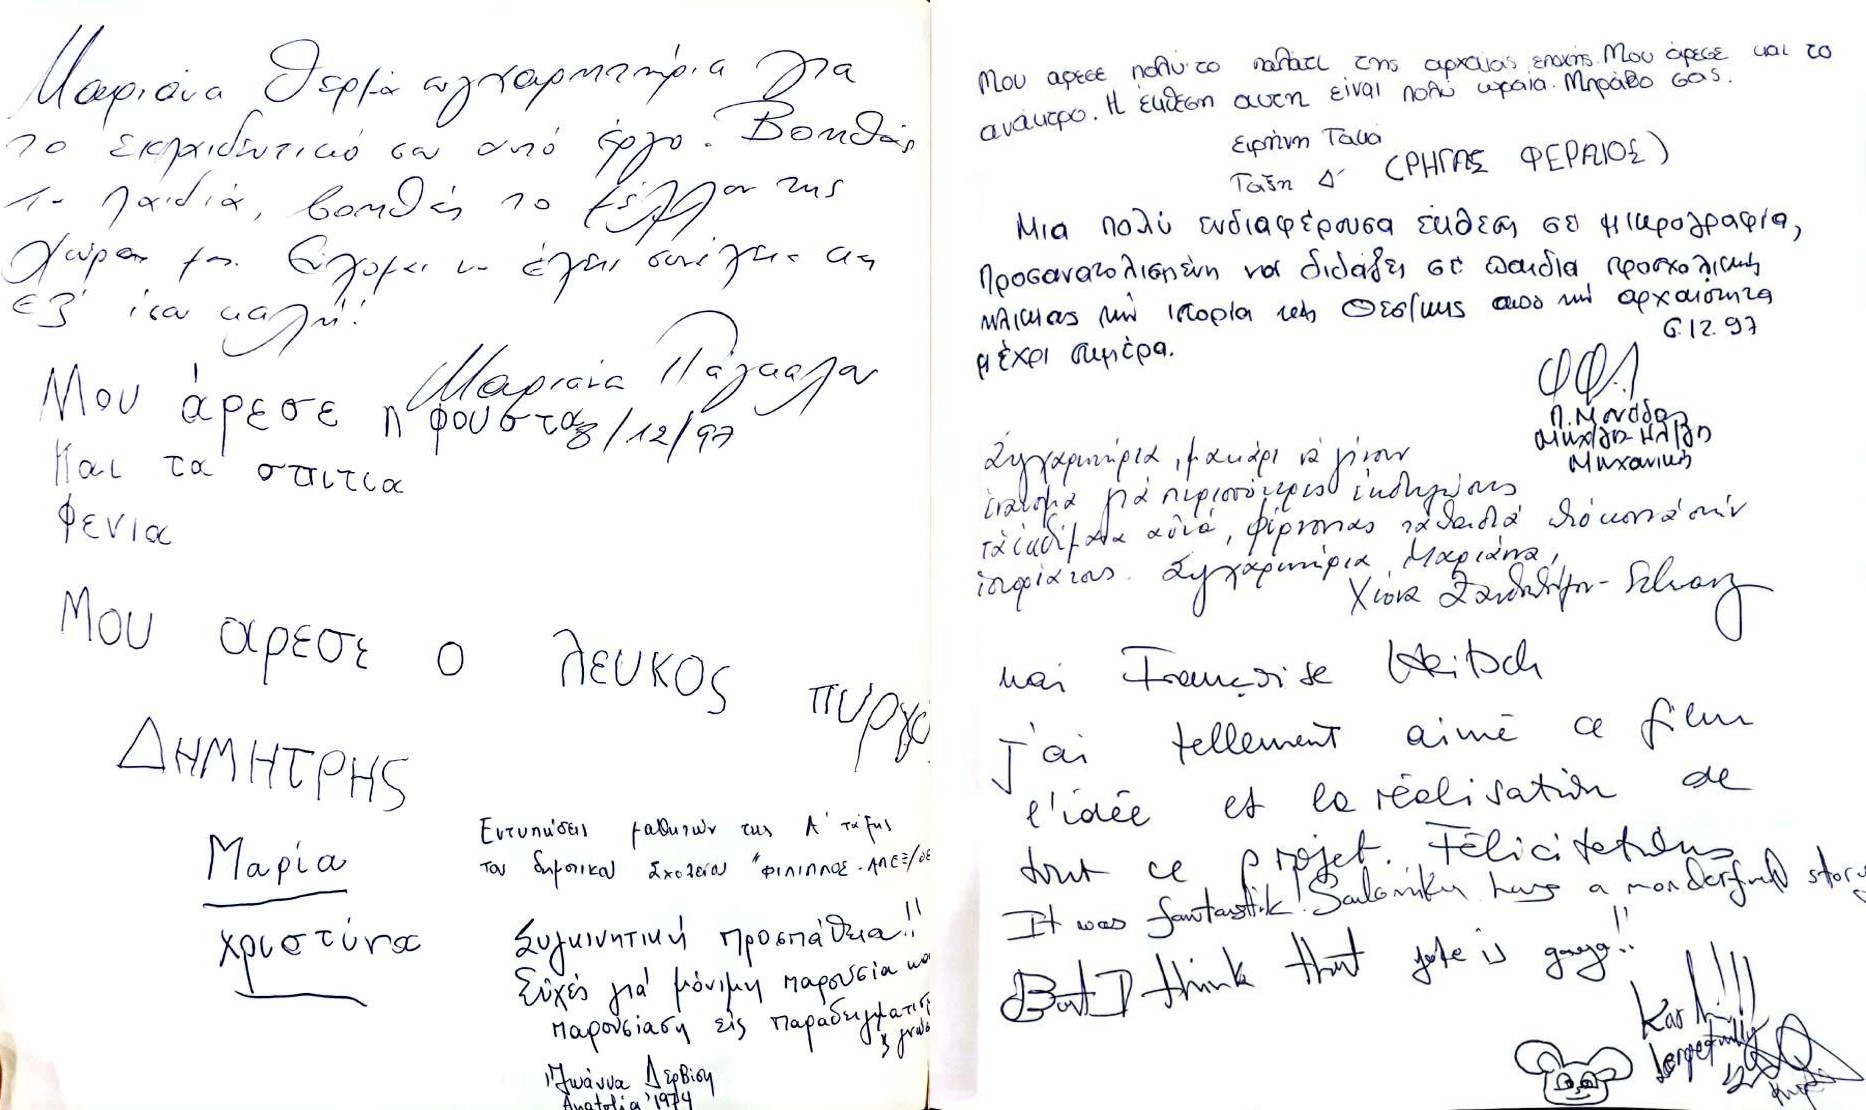 Μαριάνα θερμά συγχαρητήρια για
το εκπαιδευτικό σου αυτό έργο. Βοηθάς
τα παιδιά, βοηθάς το μέλλον της
χώρας μας. Εύχομαι να έχεις συνέχεια και
εξ' ίσου καλή!
Μαριάνα
8/12/97
Μου άρεσε η φουστα
Και τα σπιτια
Φενια
Μου αρεσε ο λευκος πυργο
ΔΗΜΗΤΡΗΣ
Μαρία
χριστύνα
Εντυπώσεις μαθητών της Α' τάξης
του δημοτικού Σχολείου "ΦΙΛΙΠΠΟΣ - ΑΛΕΞ/
Συγκινητική προσπάθεια!!
Ευχές γιά μόνιμη παρουσία κα
παρουσίαση εις παραδειγματισ
Ιωάννα Δερβίση
Anatolia '1974
Μου αρεσε πολυ το παλάτι της αρχαίας εποχής. Μου άρεσε και το
ανάκτρο. Η έκθεση αυτη είναι πολύ ωραία. Μπράβο σας.
Ειρήνη Τακά
Ταξη Δ' (ΡΗΓΑΣ ΦΕΡΑΙΟΣ)
Μια πολύ ενδιαφέρουσα έκθεση σε μικρογραφία,
προσανατολισμένη να διδάξει σε παιδια προσχολικής
ηλικιας την ιστορία της Θεσ/κης απο την αρχαιότητα
μέχρι σημέρα.
6.12.97
Μηχανικός
Συγχαρητήρια, μακάρι νά γίνουν
έναυσμα γιά περισσότερες εκδηλώσεις
τά εκθέματα αυτά, φέρνοντας τά παιδιά πιό κοντά στήν
ιστορία τους. Συγχαρητήρια Μαριάνα,
Χιόνα
και Françoise
J'ai tellement aimé ce film
l'idée et la réalisation de
tout ce projet. Félicitations
It was fantastik! Saloniku has a wonderful story
But I think that